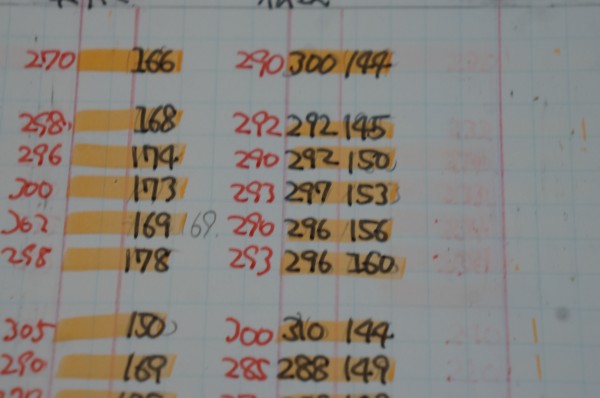 270 166 290 300 144
298 168 292 292 145
296 174 290 292 150
300 173 293 297 153
302 169 169. 290 296 156
298 178 293 296 160
305 150 300 310 144
290 169 285 288 149